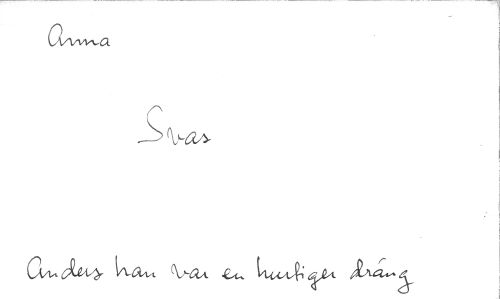 Anna
Svas
Anders han var en hurtiger dräng